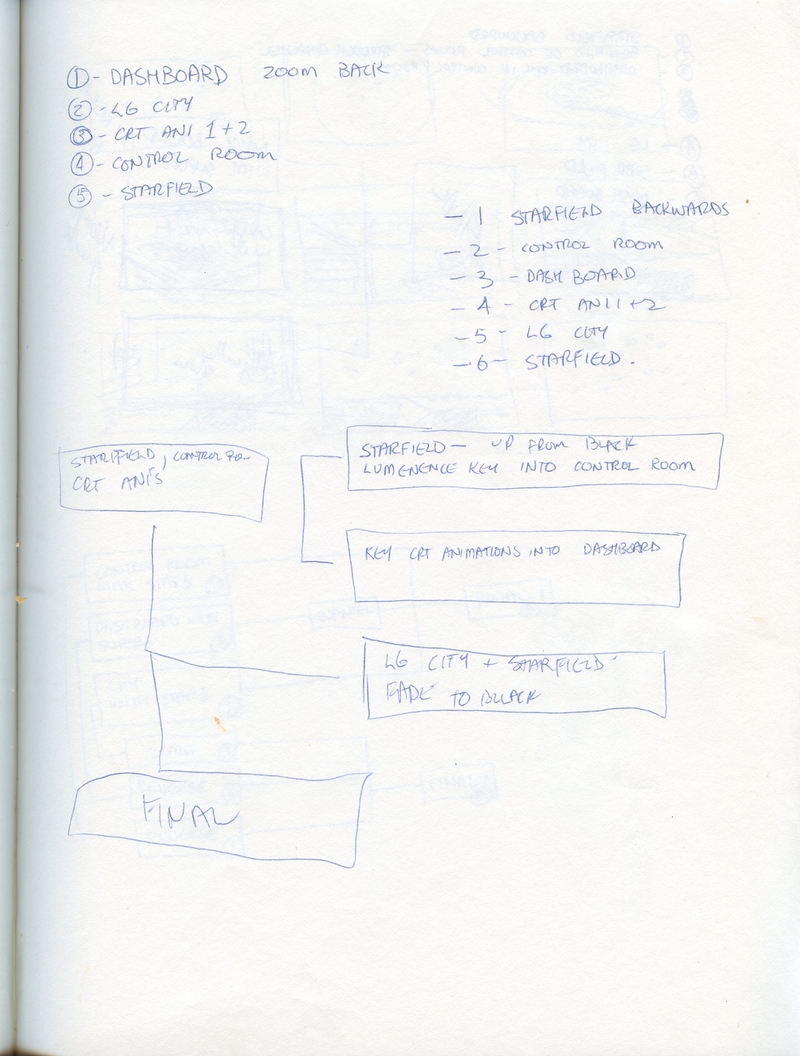 ① - DASHBOARD ZOOM BACK
② - LG CITY
③ - CRT ANI 1+2
④ - CONTROL ROOM
⑤ - STARFIELD
- 1 STARFIELD BACKWARDS
- 2 - CONTROL ROOM
- 3 - DASHBOARD
- 4 - CRT ANI 1+2
- 5 - LG CITY
- 6 - STARFIELD.
STARFIELD, CONTROL RO-
CRT ANI'S
STARFIELD - UP FROM BLACK
LUMENENCE KEY INTO CONTROL ROOM
KEY CRT ANIMATIONS INTO DASHBOARD
LG CITY + STARFIELD
FADE TO BLACK
FINAL